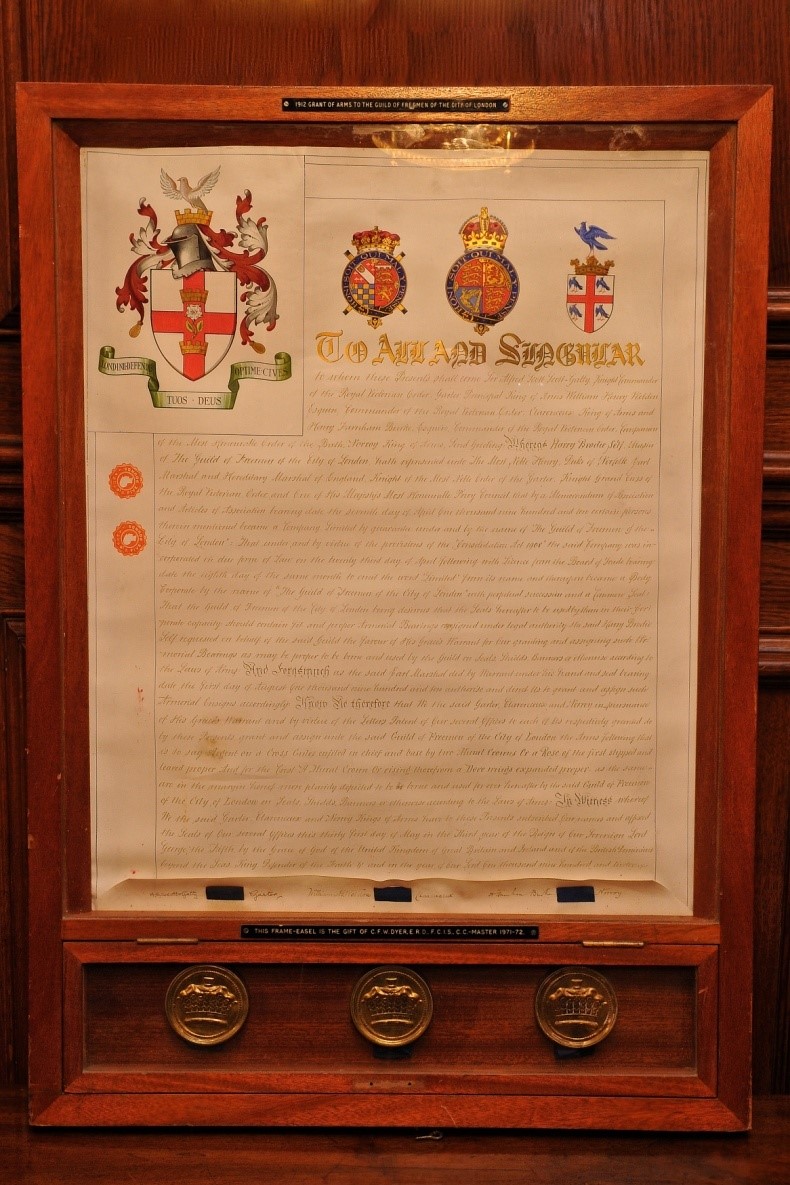 1912 GRANT OF ARMS TO THE GUILD OF FREEMEN OF THE CITY OF LONDON
HONI SOIT QUI MAL Y PENSE
DOMINE DEFENDE
OPTIME CIVES
TUOS · DEUS
TO ALL AND SINGULAR
to whom these Presents shall come Sir Alfred Scott Scott-Gatty Knight Commander
of the Royal Victorian Order, Garter Principal King of Arms William Henry Weldon
Esquire, Commander of the Royal Victorian Order, Clarenceux King of Arms and
Henry Farnham Burke Esquire, Commander of the Royal Victorian Order, Companion
of the Most Honourable Order of the Bath, Norroy King of Arms, Send Greeting Whereas Harry Brodie Self, Master
of The Guild of Freemen of the City of London hath represented unto The Most Noble Henry, Duke of Norfolk Earl
Marshal and Hereditary Marshal of England, Knight of the Most Noble Order of the Garter, Knight Grand Cross of
the Royal Victorian Order and One of His Majesty's Most Honourable Privy Council that by a Memorandum of Association
and Articles of Association bearing date the seventh day of April One thousand nine hundred and ten certain persons
therein mentioned became a Company limited by guarantee under and by the name of The Guild of Freemen of the
City of London": That under and by virtue of the provisions of the "Consolidation Act 1908" the said Company was in-
corporated in due form of Law on the twenty third day of April following with licence from the Board of Trade bearing
date the eighth day of the same month to omit the word "Limited" from its name and thereupon became a Body
Corporate by the name of "The Guild of Freemen of the City of London" with perpetual succession and a Common Seal:
That the Guild of Freemen of the City of London being desirous that the Seals thereafter to be used by them in their Cor-
porate capacity should contain fit and proper Armorial Bearings assigned under legal authority the said Harry Brodie
Self requested on behalf of the said Guild the favour of His Grace's Warrant for Our granting and assigning such Ar-
morial Bearings as may be proper to be borne and used by the Guild on Seals, Shields, Banners or otherwise according to
the Laws of Arms And Forasmuch as the said Earl Marshal did by Warrant under his hand and seal bearing
date the first day of August One thousand nine hundred and ten authorize and direct Us to grant and assign such
Armorial Ensigns accordingly Know Ye therefore that We the said Garter, Clarenceux and Norroy in pursuance
of His Grace's Warrant and by virtue of the Letters Patent of Our several Offices to each of Us respectively granted do
by these Presents grant and assign unto the said Guild of Freemen of the City of London the Arms following that
is to say Argent on a Cross Gules coupled in chief and base by two Mural Crowns Or a Rose of the first slipped and
leaved proper And for the Crest A Mural Crown Or rising therefrom a Dove wings expanded proper, as the same
are in the margin hereof more plainly depicted to be borne and used for ever hereafter by the said Guild of Freemen
of the City of London on Seals, Shields, Banners or otherwise according to the Laws of Arms In Witness whereof
We the said Garter, Clarenceux and Norroy Kings of Arms have to these Presents subscribed Our names and affixed
the Seals of Our several Offices this thirty first day of May in the Third year of the Reign of Our Sovereign Lord
George the Fifth by the Grace of God of the United Kingdom of Great Britain and Ireland and of the British Dominions
beyond the Seas King, Defender of the Faith &c and in the year of Our Lord One thousand nine hundred and twelve
Garter
Clarenceux
Norroy
THIS FRAME-EASEL IS THE GIFT OF C.F.W. DYER, E.R.D., F.C.I.S., C.C.-MASTER 1971-72.